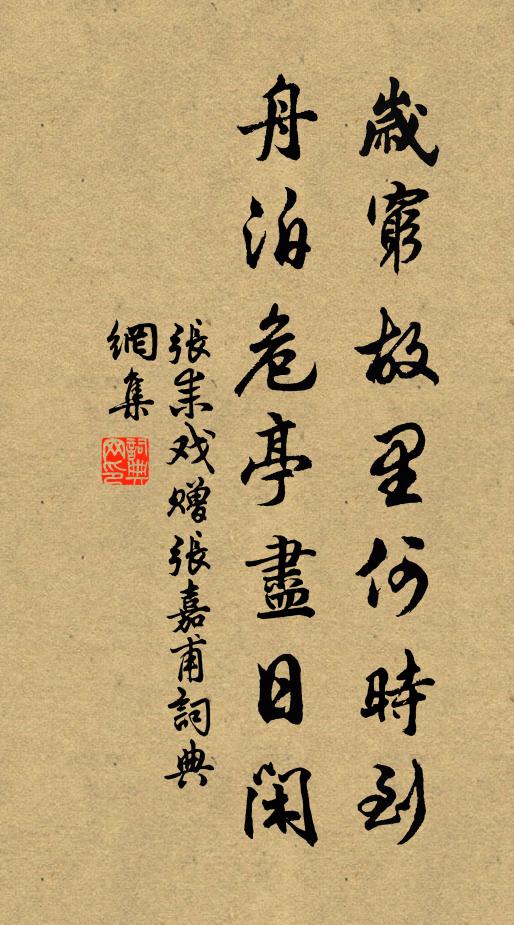 歲窮故里何時到
舟泊危亭盡日閑
張耒戏贈張嘉甫詞典
網集
詞典网印